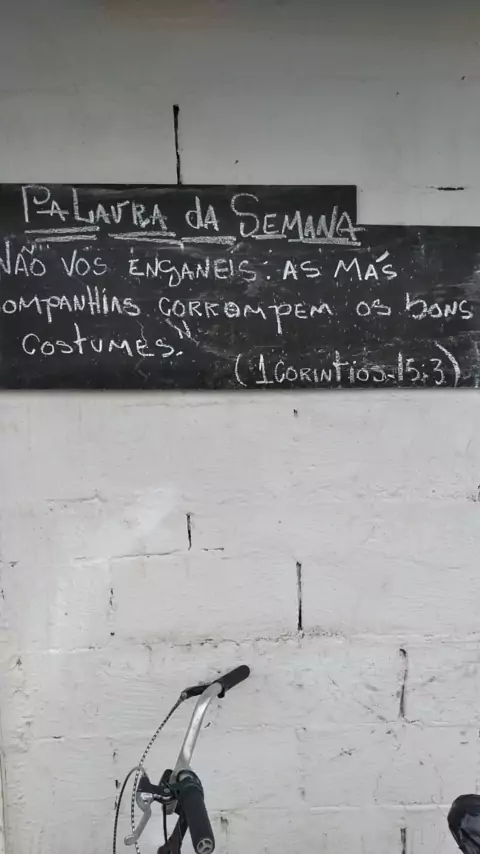 PALAVRA DA SEMANA
NÃO VOS ENGANEIS: AS MÁS
COMPANHIAS CORROMPEM OS bONS
COSTUMES."
(1CORINTIOS-15:3)